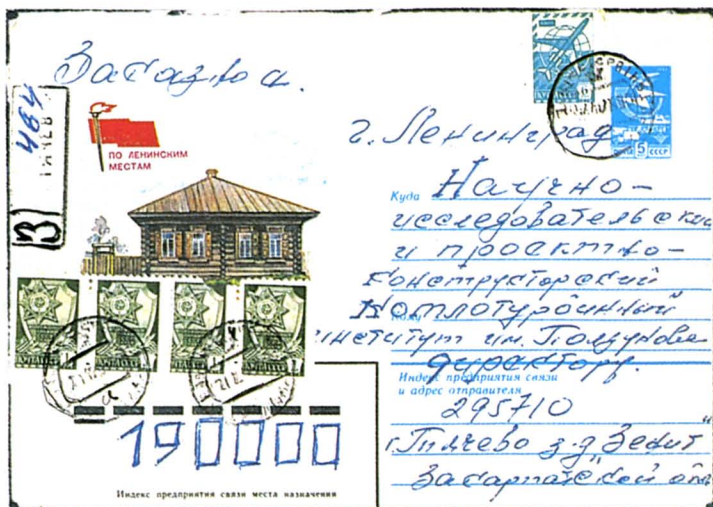 Заказно а.
464
З
ПО ЛЕНИНСКИМ
МЕСТАМ
5 СССР
г. Ленинград
Куда Научно-
исследовательски
и проектно-
конструкторский
Котлотурбинный
институт им. Ползунова
директору.
Индекс предприятия связи
и адрес отправителя
295710
г. Тячево з-д "Зенит"
Закарпатской обл
190000
Индекс предприятия связи места назначения